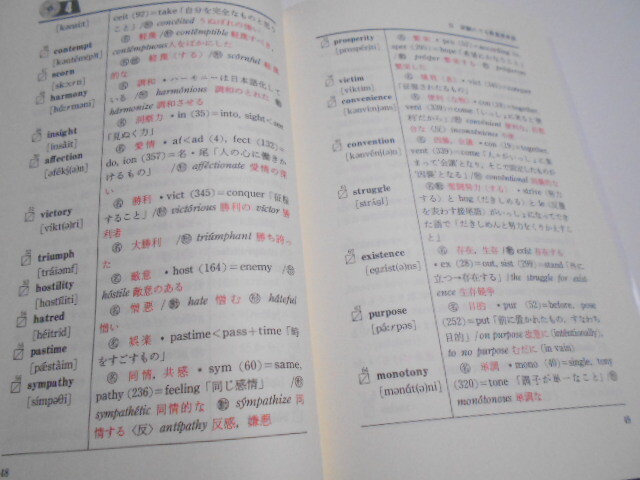 [kənsíːt]
ceit (92)=take「自分を完全なものと思う
こと」/㊒ conceited うぬぼれの強い
contempt
[kəntémpt]
㊔ 軽蔑 /㊒ contémptible 軽蔑すべき,
contémptuous 人をばかにした
scorn
[skɔːrn]
軽蔑(する)/㊒ scornful 軽蔑
的な
harmony
[hɑ́ːrməni]
調和・ハーモニーは日本語化して
いる /㊒ harmónious 調和のとれた
hármonize 調和させる
insight
[ínsàit]
洞察力・in (35)=into, sight<see
「見ぬく力」
affection
[əfékʃ(ə)n]
愛情・af<ad (4), fect (132)=
do, ion (357)=名・尾「人の心に働きか
けるもの」/ afféctionate 愛情の深
い
victory
[víkt(ə)ri]
勝利・vict (345)=conquer「征服
すること」/ victórious 勝利の victor 勝
利者
triumph
[tráiəmf]
大勝利 / triúmphant 勝ち誇っ
た
hostility
[hɑstíliti]
敵意・host (164)=enemy /
hóstile 敵意のある
hatred
[héitrid]
憎悪 / hate 憎む háteful
憎い
pastime
[pǽstàim]
娯楽・pastime<pass+time「時
をすごすもの」
sympathy
[símpəθi]
同情, 共感・sym (60)=same,
pathy (236)=feeling「同じ感情」/
sympathétic 同情的な sýmpathize 同
情する〈反〉antípathy 反感, 嫌悪
48
prosperity
[prɑspériti]
繁栄・pro (52)=according to,
prósper 繁栄する
繁栄した
victim
[víktim]
犠牲(者)
「征服されたもの」
convenience
[kənvíːnjəns]
便利
vent (339)=come
な inconvénience 不便
convention
[kənvénʃ(ə)n]
因襲, 会議・con (23)=together,
vent (339)=come「人々がいっしょに集
まって‘会議’となり, そこで協定したものが
‘因襲’となる」/ convéntional 因襲的な
struggle
[strʌ́gl]
奮闘努力(する)・strive (努力
する) と hug (だきしめる) と le (反復
を表わす接尾語) がいっしょになってでき
た語で「だきしめんと努力をくりかえすこ
と」
existence
[egzíst(ə)ns]
存在, 生存 / exíst 存在する
・ex (28)=out, sist (299)=stand「外に
立つ→存在する」/the struggle for exist-
ence 生存競争
purpose
[pə́ːrpəs]
目的・pur (52)=before, pose
(252)=put「前に置かれたもの, すなわち
目的」/on purpose 故意に (inténtionally),
to no purpose むだに (in vain)
monotony
[mənɑ́t(ə)ni]
単調・mono (46)=single, tony
(320)=tone「調子が単一なこと」/
monótonous 単調な
49